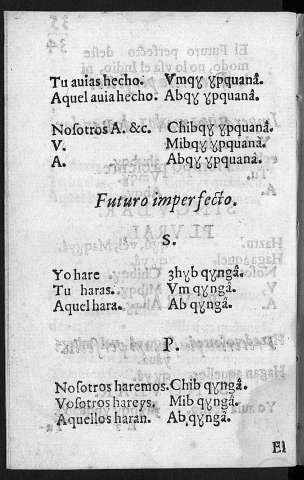 Tu auias hecho. Vmqɣ ɣpquanâ.
Aquel auia hecho. Abqɣ ɣpquanâ.
Nosotros A. &c. Chibqɣ ɣpquanâ.
V. Mibqɣ ɣpquanâ.
A. Abqɣ ɣpquanâ.
Futuro imperfecto.
S.
Yo hare ȝhɣb qɣngâ.
Tu haras. Vm qɣngâ.
Aquel hara. Ab qɣngâ.
P.
Nosotros haremos. Chib qɣngâ.
Vosotros hareys. Mib qɣngâ.
Aquellos haran. Ab qɣngâ.
El